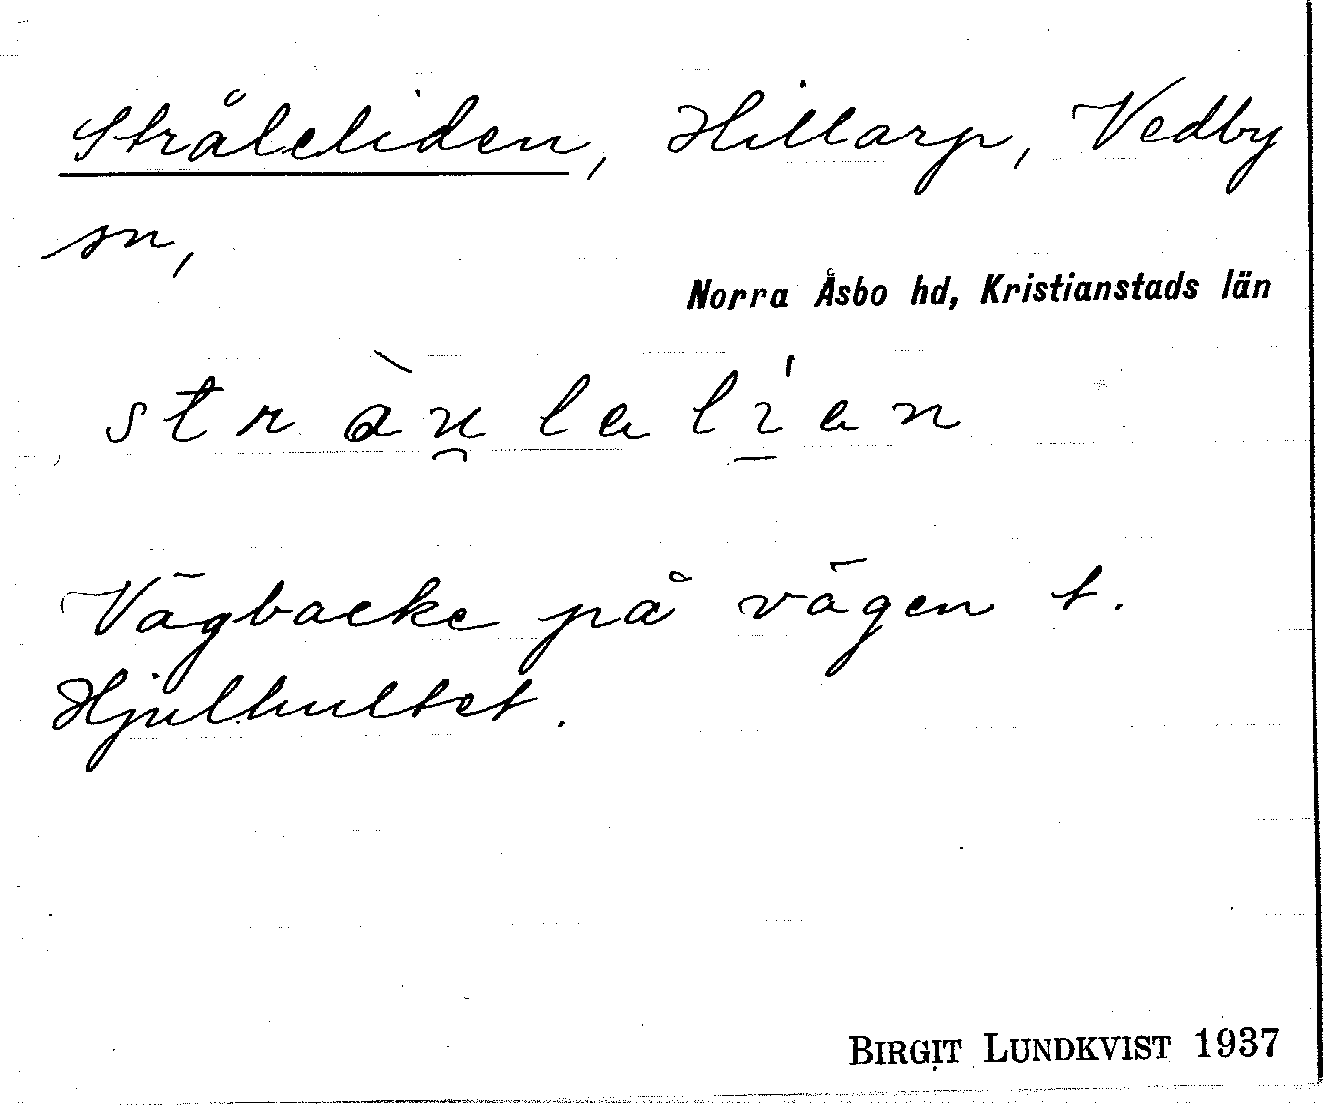 Stråleliden, Hillarp, Vedby
sn,
Norra Åsbo hd, Kristianstads län
stràu̯lalı̱́an
Vägbacke på vägen t.
Hjulhultet.
BIRGIT LUNDKVIST 1937